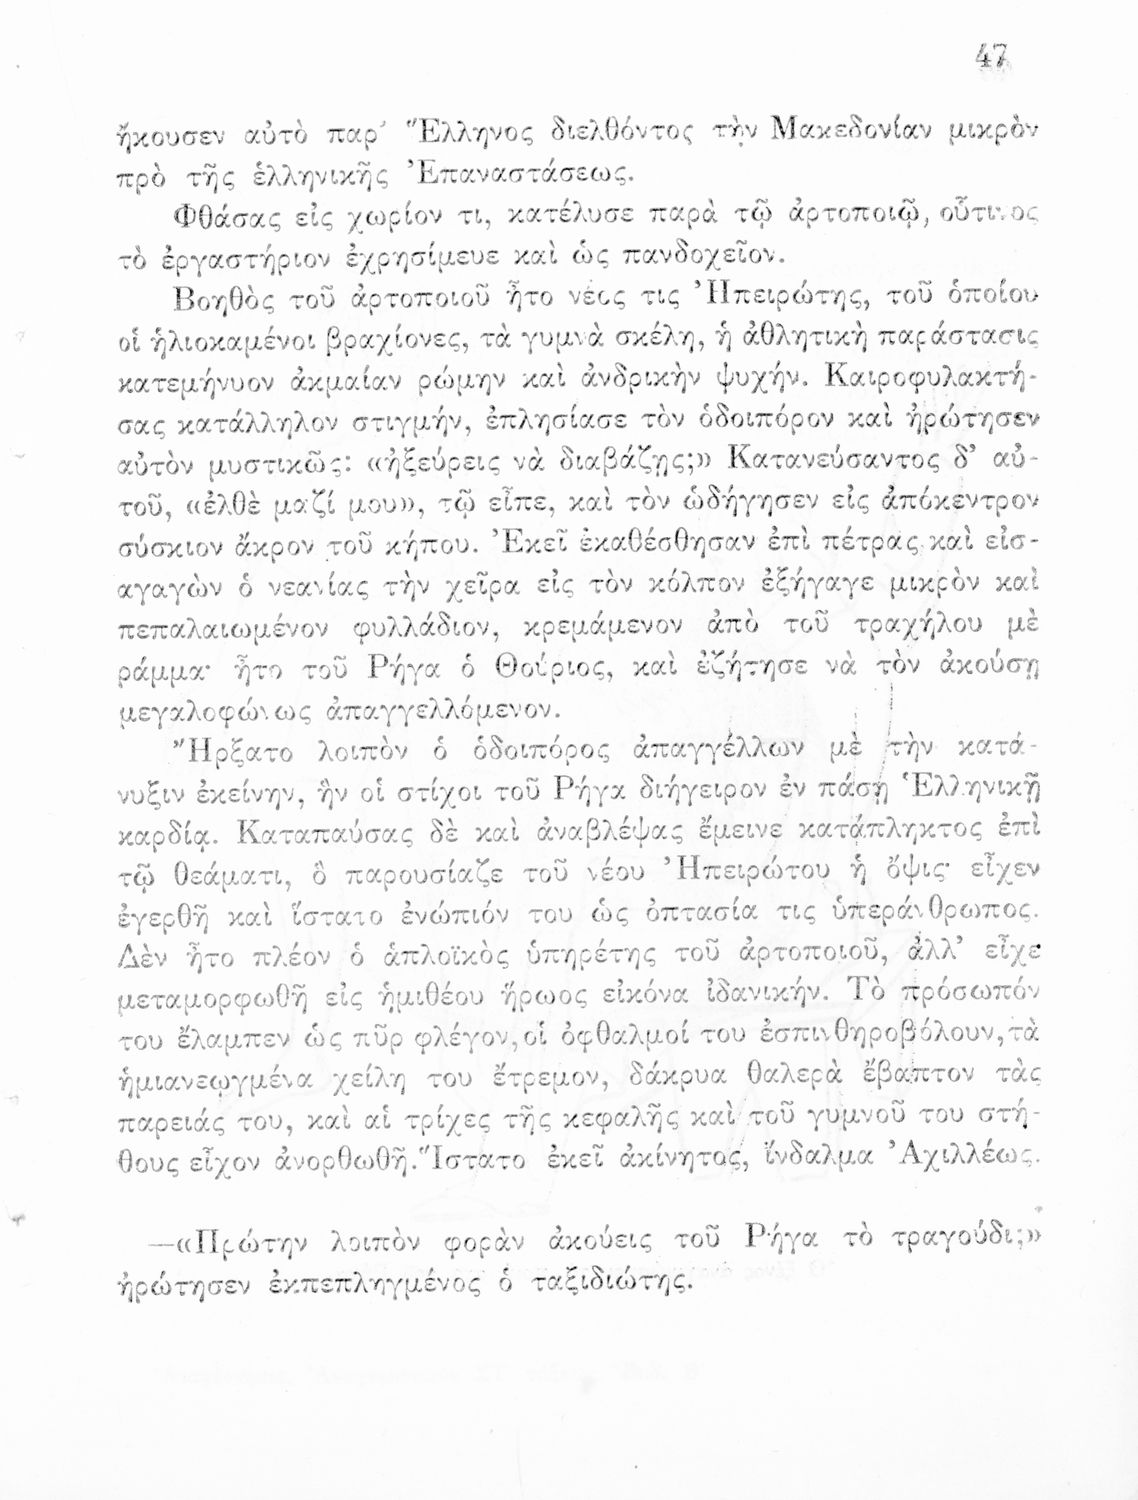 47
ἤκουσεν αὐτὸ παρ’ Ἕλληνος διελθόντος τὴν Μακεδονίαν μικρὸν
πρὸ τῆς ἑλληνικῆς Ἐπαναστάσεως.
Φθάσας εἰς χωρίον τι, κατέλυσε παρὰ τῷ ἀρτοποιῷ, οὗτινος
τὸ ἐργαστήριον ἐχρησίμευε καὶ ὡς πανδοχεῖον.
Βοηθὸς τοῦ ἀρτοποιοῦ ἦτο νέος τις Ἠπειρώτης, τοῦ ὁποίου
οἱ ἡλιοκαμένοι βραχίονες, τὰ γυμνὰ σκέλη, ἡ ἀθλητικὴ παράστασις
κατεμήνυον ἀκμαίαν ρώμην καὶ ἀνδρικὴν ψυχήν. Καιροφυλακτή-
σας κατάλληλον στιγμήν, ἐπλησίασε τὸν ὁδοιπόρον καὶ ἠρώτησεν
αὐτὸν μυστικῶς: «ἠξεύρεις νὰ διαβάζῃς;» Κατανεύσαντος δ’ αὐ-
τοῦ, «ἐλθὲ μαζί μου», τῷ εἶπε, καὶ τὸν ὡδήγησεν εἰς ἀπόκεντρον
σύσκιον ἄκρον τοῦ κήπου. Ἐκεῖ ἐκαθέσθησαν ἐπὶ πέτρας καὶ εἰσ-
αγαγὼν ὁ νεανίας τὴν χεῖρα εἰς τὸν κόλπον ἐξήγαγε μικρὸν καὶ
πεπαλαιωμένον φυλλάδιον, κρεμάμενον ἀπὸ τοῦ τραχήλου μὲ
ράμμα· ἦτο τοῦ Ρήγα ὁ Θούριος, καὶ ἐζήτησε νὰ τὸν ἀκούσῃ
μεγαλοφώνως ἀπαγγελλόμενον.
Ἤρξατο λοιπὸν ὁ ὁδοιπόρος ἀπαγγέλλων μὲ τὴν κατά-
νυξιν ἐκείνην, ἣν οἱ στίχοι τοῦ Ρήγα διήγειρον ἐν πάσῃ Ἑλληνικῇ
καρδίᾳ. Καταπαύσας δὲ καὶ ἀναβλέψας ἔμεινε κατάπληκτος ἐπὶ
τῷ θεάματι, ὃ παρουσίαζε τοῦ νέου Ἠπειρώτου ἡ ὄψις· εἶχεν
ἐγερθῆ καὶ ἵστατο ἐνώπιόν του ὡς ὀπτασία τις ὑπεράνθρωπος.
Δὲν ἦτο πλέον ὁ ἁπλοϊκὸς ὑπηρέτης τοῦ ἀρτοποιοῦ, ἀλλ’ εἶχε
μεταμορφωθῆ εἰς ἡμιθέου ἥρωος εἰκόνα ἰδανικήν. Τὸ πρόσωπόν
του ἔλαμπεν ὡς πῦρ φλέγον, οἱ ὀφθαλμοί του ἐσπινθηροβόλουν, τὰ
ἡμιανεῳγμένα χείλη του ἔτρεμον, δάκρυα θαλερὰ ἔβαπτον τὰς
παρειάς του, καὶ αἱ τρίχες τῆς κεφαλῆς καὶ τοῦ γυμνοῦ του στή-
θους εἶχον ἀνορθωθῆ. Ἵστατο ἐκεῖ ἀκίνητος, ἴνδαλμα Ἀχιλλέως.
—«Πρώτην λοιπὸν φορὰν ἀκούεις τοῦ Ρήγα τὸ τραγούδι;»
ἠρώτησεν ἐκπεπληγμένος ὁ ταξιδιώτης.